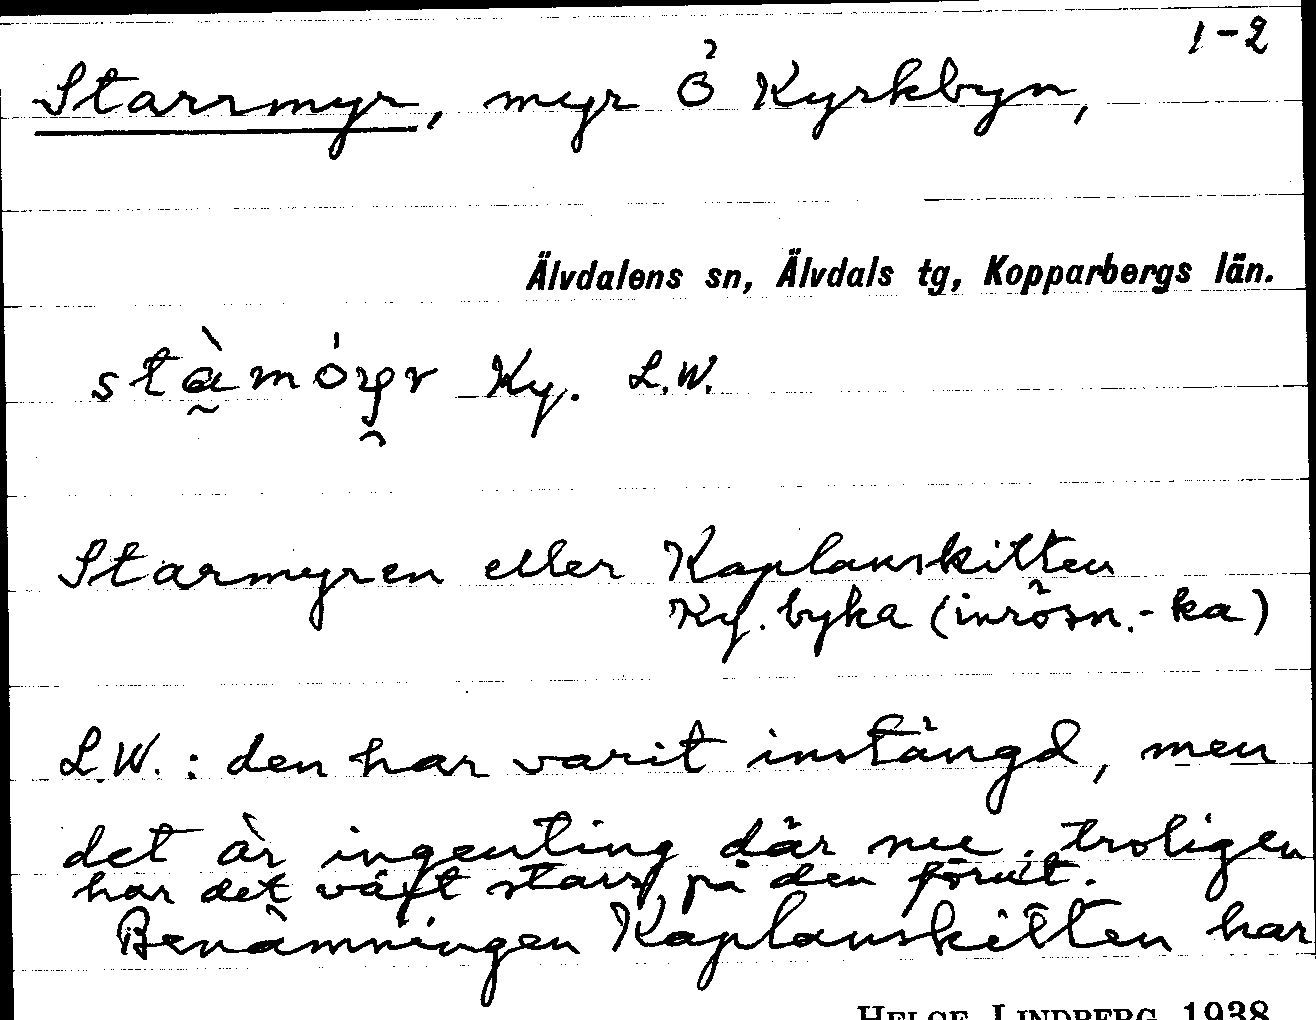 1-2
Starrmyr, myr Ö Kyrkbyn,
Älvdalens sn, Älvdals tg, Kopparbergs län.
Ky. L.W.
Starmyren eller Kaplanskitten
Ky. byka (inrösn.-ka)
L.W.: den har varit instängd, men
det är ingenting där nu. troligen
har det växt starr på den förut.
Benämningen Kaplanskitten har
HELGE LINDBERG 1938